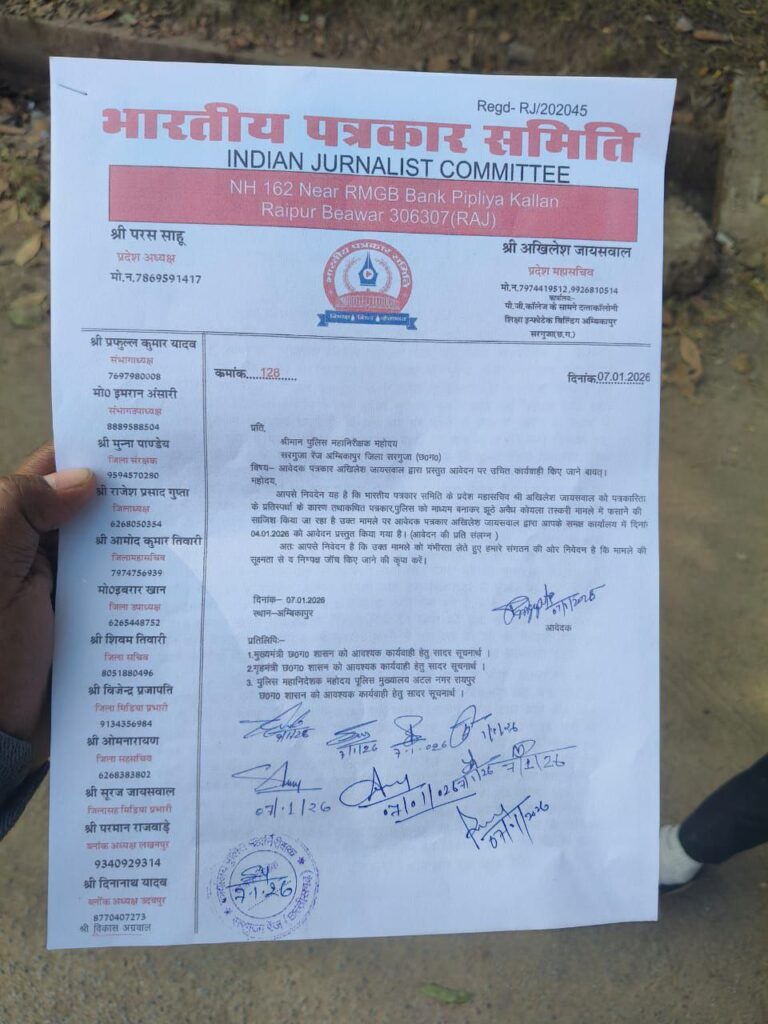 Regd- RJ/202045
भारतीय पत्रकार समिति
INDIAN JURNALIST COMMITTEE
NH 162 Near RMGB Bank Pipliya Kallan
Raipur Beawar 306307(RAJ)
श्री परस साहू
प्रदेश अध्यक्ष
मो.न.7869591417
भारतीय पत्रकार समिति
श्री अखिलेश जायसवाल
प्रदेश महासचिव
मो.न.7974419512,9926810514
कार्यालय:-
पी.जी.कॉलेज के सामने दत्ताकॉलोनी
शिक्षा इन्फोटेक बिल्डिंग अम्बिकापुर
सरगुजा(छ.ग.)
श्री प्रफुल्ल कुमार यादव
संभागाध्यक्ष
7697980008
मो0 इमरान अंसारी
संभागउपाध्यक्ष
8889588504
श्री मुन्ना पाण्डेय
जिला संरक्षक
9594570280
श्री राजेश प्रसाद गुप्ता
जिलाध्यक्ष
6268050354
श्री आमोद कुमार तिवारी
जिलामहासचिव
7974756939
मो0इबरार खान
जिला उपाध्यक्ष
6265448752
श्री शिवम तिवारी
जिला सचिव
8051880496
श्री विजेन्द्र प्रजापति
जिला मिडिया प्रभारी
9134356984
श्री ओमनारायण
जिला सहसचिव
6268383802
श्री सूरज जायसवाल
जिलासह मिडिया प्रभारी
श्री परमान राजवाड़े
ब्लॉक अध्यक्ष लखनपुर
9340929314
श्री दिनानाथ यादव
ब्लॉक अध्यक्ष उदयपुर
8770407273
श्री विकास अग्रवाल
कमांक....128......
दिनांक:07.01.2026
प्रति,
श्रीमान पुलिस महानिरीक्षक महोदय
सरगुजा रेंज अम्बिकापुर जिला सरगुजा (छ0ग0)
विषय:– आवेदक पत्रकार अखिलेश जायसवाल द्वारा प्रस्तुत आवेदन पर उचित कार्यवाही किए जाने बाबत्।
महोदय,
आपसे निवदेन यह है कि भारतीय पत्रकार समिति के प्रदेश महासचिव श्री अखिलेश जायसवाल को पत्रकारिता
के प्रतिस्पर्धा के कारण तथाकथित पत्रकार,पुलिस को माध्यम बनाकर झूठे अवैध कोयला तस्करी मामले में फसाने की
साजिश किया जा रहा है उक्त मामले पर आवेदक पत्रकार अखिलेश जायसवाल द्वारा आपके समक्ष कार्यालय में दिनां
04.01.2026 को आवेदन प्रस्तुत किया गया है। (आवेदन की प्रति संलग्न )
अतः आपसे निवेदन है कि उक्त मामले को गंभीरता लेते हुए हमारे संगठन की ओर निवेदन है कि मामले की
सूक्ष्नता से व निष्पक्ष जाँच किए जाने की कृपा करें।
दिनांक:– 07.01.2026
स्थान–अम्बिकापुर
07/1/2026
आवेदक
प्रतिलिपिः–
1.मुख्यमंत्री छ0ग0 शासन को आवश्यक कार्यवाही हेतु सादर सूचनार्थ ।
2.गृहमंत्री छ0ग0 शासन को आवश्यक कार्यवाही हेतु सादर सूचनार्थ ।
3. पुलिस महानिदेशक महोदय पूलिस मुख्यालय अटल नगर रायपुर
छ0ग0 शासन को आवश्यक कार्यवाही हेतु सादर सूचनार्थ ।
7/1/26
7/1/26
7/1/26
07/1/26
07/01/026
7/1/26
7/1/26
07/01/2026
7.1.26
सरगुजा रेंज (छत्तीसगढ़)